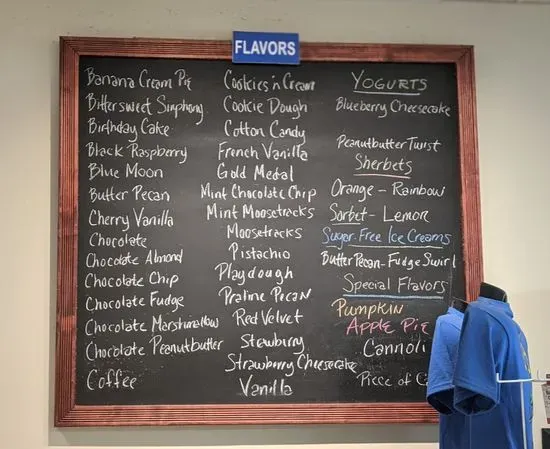 FLAVORS
Banana Cream Pie
Bittersweet Sinphony
Birthday Cake
Black Raspberry
Blue Moon
Butter Pecan
Cherry Vanilla
Chocolate
Chocolate Almond
Chocolate Chip
Chocolate Fudge
Chocolate Marshmallow
Chocolate Peanutbutter
Coffee
Cookies 'n Cream
Cookie Dough
Cotton Candy
French Vanilla
Gold Medal
Mint Chocolate Chip
Mint Moosetracks
Moosetracks
Pistachio
Playdough
Praline Pecan
Red Velvet
Stewburry
Strawberry Cheesecake
Vanilla
YOGURTS
Blueberry Cheesecake
Peanutbutter Twist
Sherbets
Orange - Rainbow
Sorbet - Lemon
Sugar-Free Ice Creams
Butter Pecan - Fudge Swirl
Special Flavors
PUMPKIN
APPLE PIE
Cannoli
Piece of